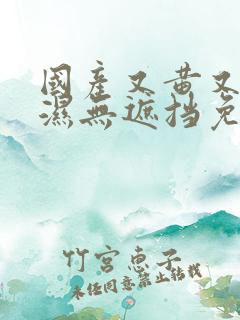 國產又黃又
濕無遮挡免
竹宮惠子
未经同意禁止转载